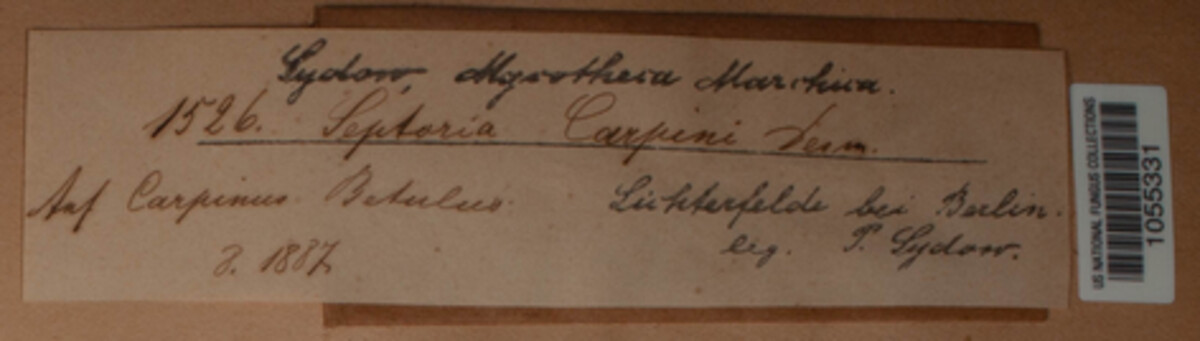 Sydow, Mycotheca Marchica.
1526. Septoria Carpini Desm.
Auf Carpinus Betulus.
8. 1887
Lichterfelde bei Berlin.
leg. P. Sydow.
US NATIONAL FUNGUS COLLECTIONS
1055331